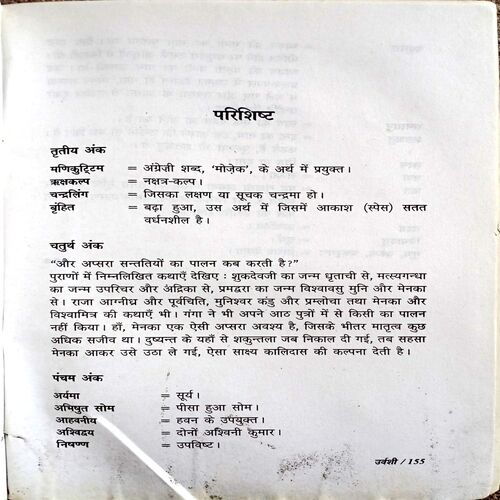 परिशिष्ट
तृतीय अंक
मणिकुट्टिम = अंग्रेज़ी शब्द, 'मोज़ेक', के अर्थ में प्रयुक्त।
ऋक्षकल्प = नक्षत्र-कल्प।
चन्द्रलिंग = जिसका लक्षण या सूचक चन्द्रमा हो।
बृंहित = बढ़ा हुआ, उस अर्थ में जिसमें आकाश (स्पेस) सतत
वर्धनशील है।
चतुर्थ अंक
“और अप्सरा सन्ततियों का पालन कब करती है?”
पुराणों में निम्नलिखित कथाएँ देखिए : शुकदेवजी का जन्म धृताची से, मत्स्यगन्धा
का जन्म उपरिचर और अंद्रिका से, प्रमद्वरा का जन्म विश्वावसु मुनि और मेनका
से। राजा आग्नीध्र और पूर्वचिति, मुनिश्वर कंडु और प्रम्लोचा तथा मेनका और
विश्वामित्र की कथाएँ भी। गंगा ने भी अपने आठ पुत्रों में से किसी का पालन
नहीं किया। हाँ, मेनका एक ऐसी अप्सरा अवश्य है, जिसके भीतर मातृत्व कुछ
अधिक सजीव था। दुष्यन्त के यहाँ से शकुन्तला जब निकाल दी गई, तब सहसा
मेनका आकर उसे उठा ले गई, ऐसा साक्ष्य कालिदास की कल्पना देती है।
पंचम अंक
अर्यमा = सूर्य।
अभिषुत सोम = पीसा हुआ सोम।
आहवनीय = हवन के उपयुक्त।
अश्विद्वय = दोनों अश्विनी कुमार।
निषण्ण = उपविष्ट।
उर्वशी / 155